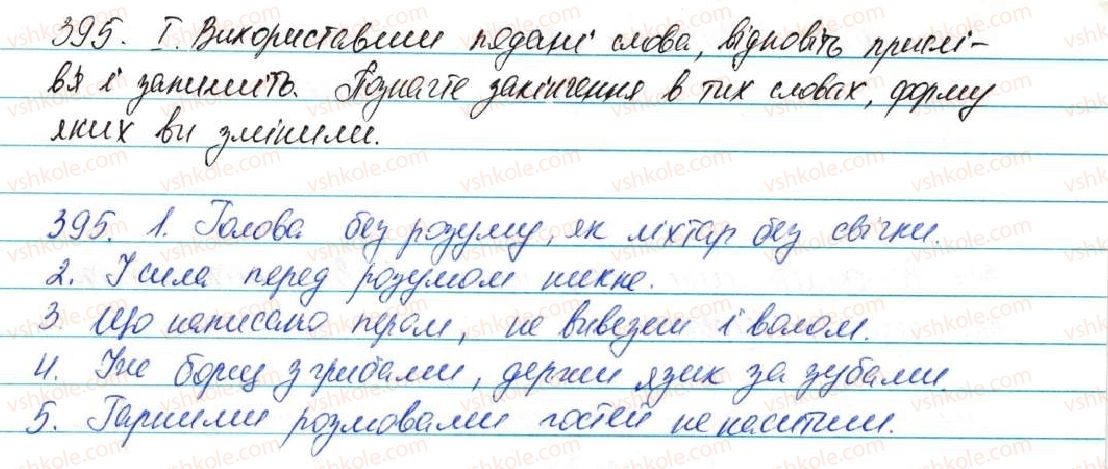 395. І. Використавши подані слова, відновіть прислі-
в'я і запишіть. Позначте закінчення в тих словах, форму
яких ви змінили.
395. 1. Голова без розуму, як ліхтар без свічки.
2. І сила перед розумом никне.
3. Що написано пером, не вивезеш і волом.
4. Їж борщ з грибами, держи язик за зубами.
5. Гарними розмовами гостей не наситиш.